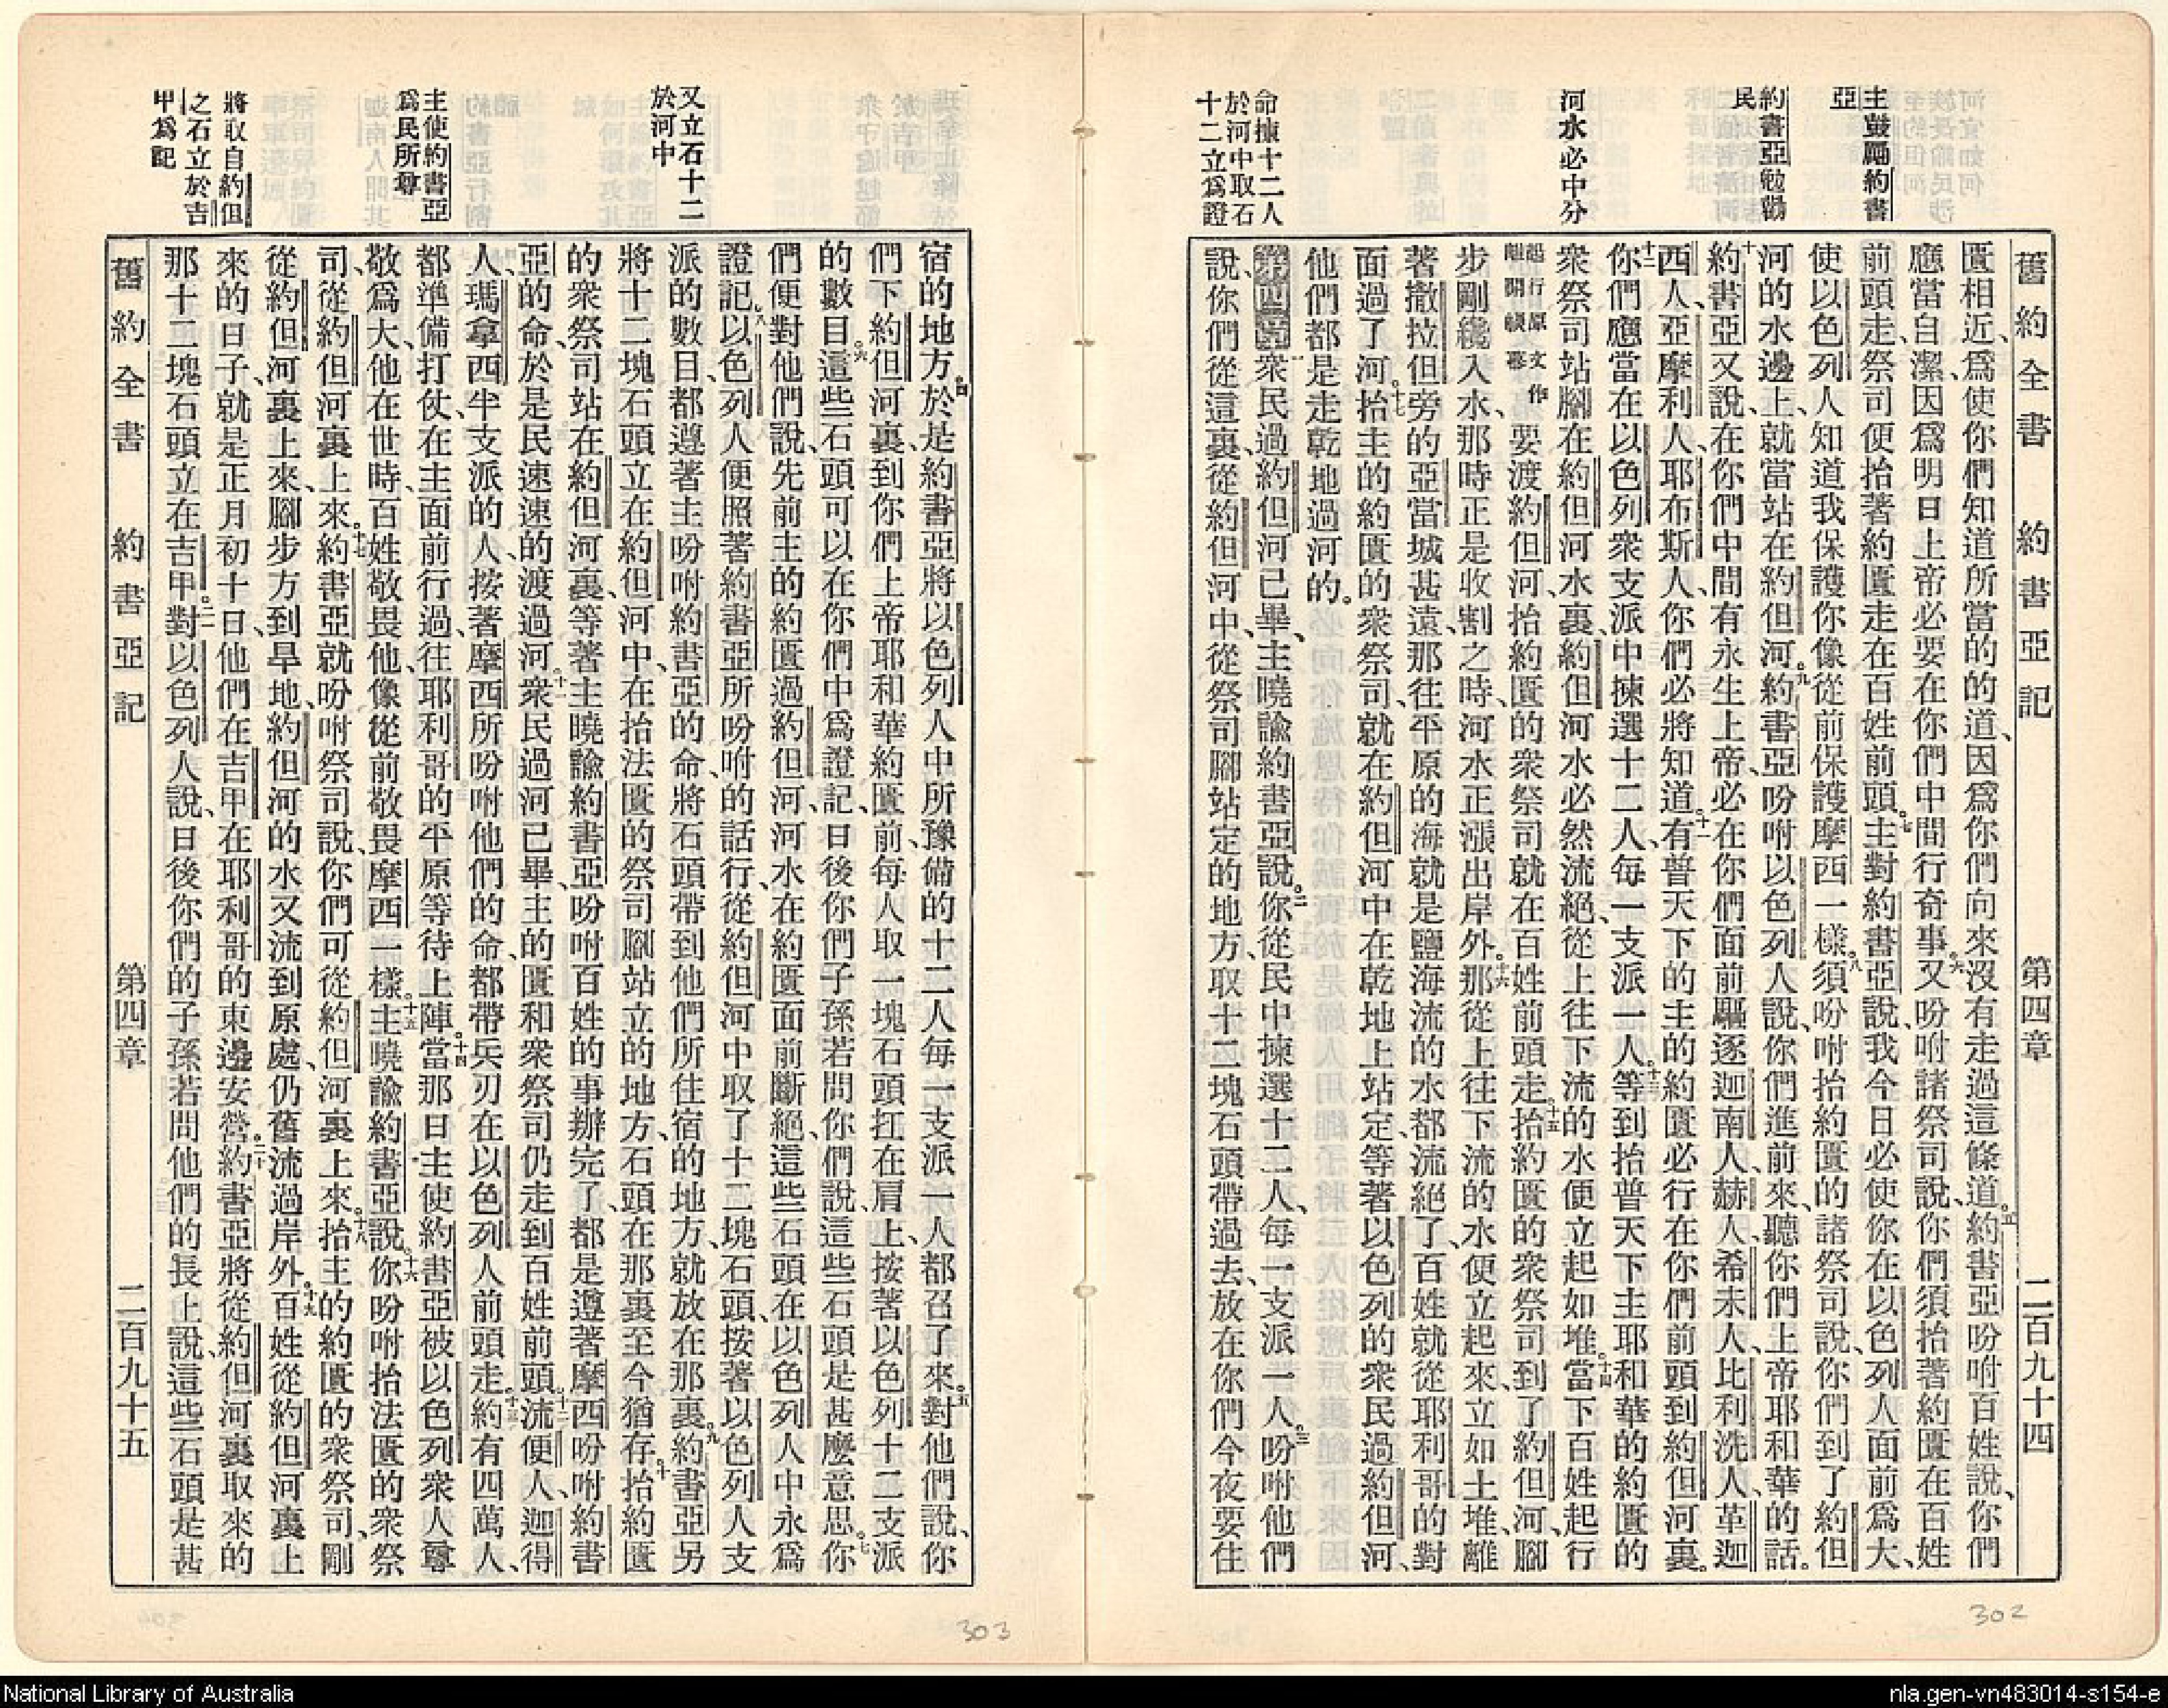 舊約全書 約書亞記 第四章 二百九十四
主鼓勵約書
亞
約書亞勉勸
民
河水必中分
命揀十二人
於河中取石
十二立爲證
匱相近、爲使你們知道所當的的道、因爲你們向來沒有走過這條道。五約書亞吩咐百姓說、你們
應當自潔、因爲明日上帝必要在你們中間行奇事。六又吩咐諸祭司說、你們須抬著約匱在百姓
前頭走、祭司便抬著約匱走在百姓前頭。七主對約書亞說、我今日必使你在以色列人面前爲大、
使以色列人知道我保護你像從前保護摩西一樣。八須吩咐抬約匱的諸祭司說、你們到了約但
河的水邊上、就當站在約但河。九約書亞吩咐以色列人說、你們進前來、聽你們上帝耶和華的話。
十約書亞又說、在你們中間有永生上帝、必在你們面前驅逐迦南人、赫人、希未人、比利洗人、革迦
西人、亞摩利人、耶布斯人、你們必將知道。十一有普天下的主的約匱必行在你們前頭到約但河裏。
十二你們應當在以色列衆支派中揀選十二人、每一支派一人。十三等到抬普天下主耶和華的約匱的
衆祭司站腳在約但河水裏、約但河水必然流絕、從上往下流的水便立起如堆。十四當下百姓起行
起行原文作離開帳幕
要渡約但河、抬約匱的衆祭司就在百姓前頭走。十五抬約匱的衆祭司到了約但河、腳
步剛纔入水、那時正是收割之時、河水正漲出岸外。十六那從上往下流的水便立起來、立如土堆、離
著撒拉但旁的亞當城甚遠、那往平原的海就是鹽海流的水都流絕了、百姓就從耶利哥的對
面過了河。十七抬主的約匱的衆祭司、就在約但河中在乾地上站定、等著以色列的衆民過約但河、
他們都是走乾地過河的。
第四章衆民過約但河已畢、主曉諭約書亞說。二你從民中揀選十二人、每一支派一人。三吩咐他們
說、你們從這裏、從約但河中、從祭司腳站定的地方、取十二塊石頭帶過去、放在你們今夜要住
又立石十二
於河中
主使約書亞
爲民所尊
將取自約但
之石立於吉
甲爲記
宿的地方。四於是約書亞將以色列人中所豫備的十二人、每一支派一人、都召了來。五對他們說、你
們下約但河裏、到你們上帝耶和華約匱前、每人取一塊石頭扛在肩上、按著以色列十二支派
的數目。六這些石頭可以在你們中爲證記、日後你們子孫若問你們說、這些石頭是甚麼意思。七你
們便對他們說、先前主的約匱過約但河、河水在約匱面前斷絕、這些石頭在以色列人中永爲
證記。八以色列人便照著約書亞所吩咐的話行、從約但河中取了十二塊石頭、按著以色列人支
派的數目、都遵著主吩咐約書亞的命、將石頭帶到他們所住宿的地方、就放在那裏。九約書亞另
將十二塊石頭立在約但河中、在抬法匱的祭司腳站立的地方、石頭在那裏至今猶存。十抬約匱
的衆祭司站在約但河裏、等著主曉諭約書亞吩咐百姓的事辦完了、都是遵著摩西吩咐約書
亞的命、於是民速速的渡過河。十一衆民過河已畢、主的匱和衆祭司仍走到百姓前頭。十二流便人、迦得
人、瑪拿西半支派的人、按著摩西所吩咐他們的命、都帶兵刃在以色列人前頭走。十三約有四萬人、
都準備打仗、在主面前行過、往耶利哥的平原等待上陣。十四當那日主使約書亞被以色列衆人尊
敬爲大、他在世時百姓敬畏他、像從前敬畏摩西一樣。十五主曉諭約書亞說。十六你吩咐抬法匱的衆祭
司、從約但河裏上來。十七約書亞就吩咐祭司說、你們可從約但河裏上來。十八抬主的約匱的衆祭司、剛
從約但河裏上來、腳步方到旱地、約但河的水又流到原處、仍舊流過岸外。十九百姓從約但河裏上
來的日子、就是正月初十日、他們在吉甲在耶利哥的東邊安營。二十約書亞將從約但河裏取來的
那十二塊石頭立在吉甲。二一對以色列人說、日後你們的子孫若問他們的長上說、這些石頭是甚
舊約全書 約書亞記 第四章 二百九十五
302
303
National Library of Australia
nla.gen-vn483014-s154-e